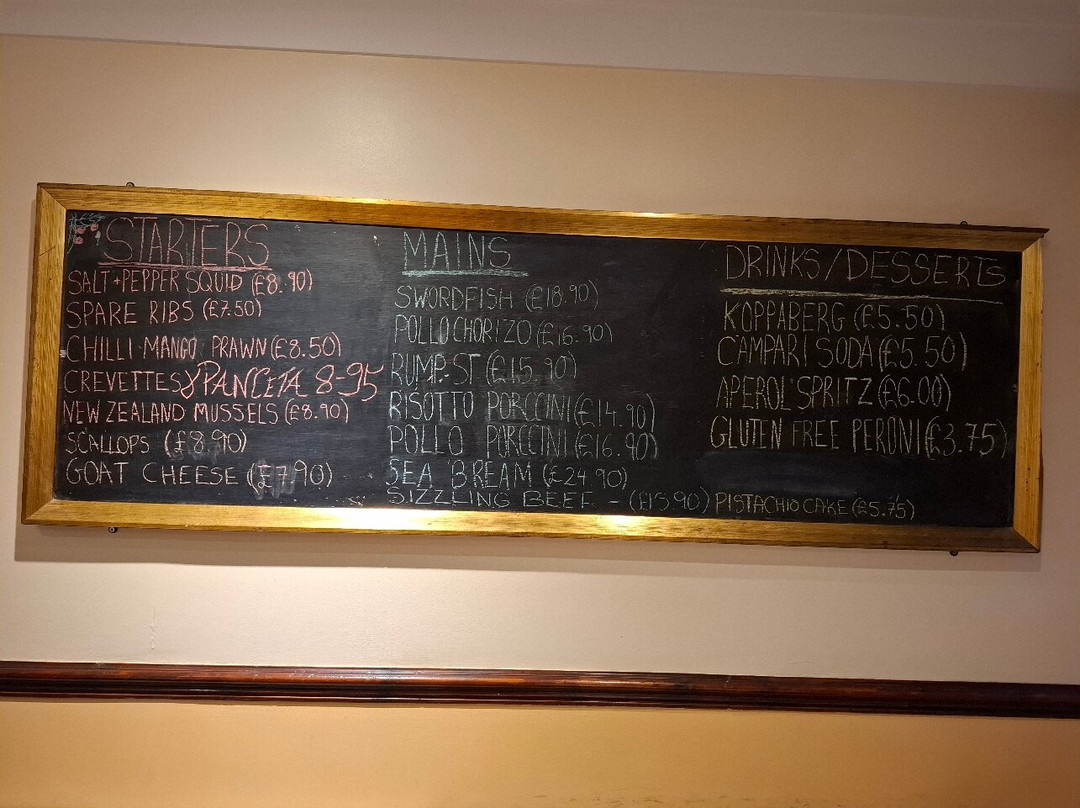 STARTERS
SALT+PEPPER SQUID (£8.90)
SPARE RIBS (£7.50)
CHILLI MANGO PRAWN (£8.50)
CREVETTES & PANCETA 8-95
NEW ZEALAND MUSSELS (£8.90)
SCALLOPS (£8.90)
GOAT CHEESE (£7.90)
MAINS
SWORDFISH (£18.90)
POLLO CHORIZO (£16.90)
RUMP.ST (£15.90)
RISOTTO PORCCINI (£14.90)
POLLO PORCCINI (£16.90)
SEA BREAM (£24.90)
SIZZLING BEEF - (£15.90)
DRINKS/DESSERTS
KOPPABERG (£5.50)
CAMPARI SODA (£5.50)
APEROL SPRITZ (£6.00)
GLUTEN FREE PERONI (£3.75)
PISTACHIO CAKE (£5.75)